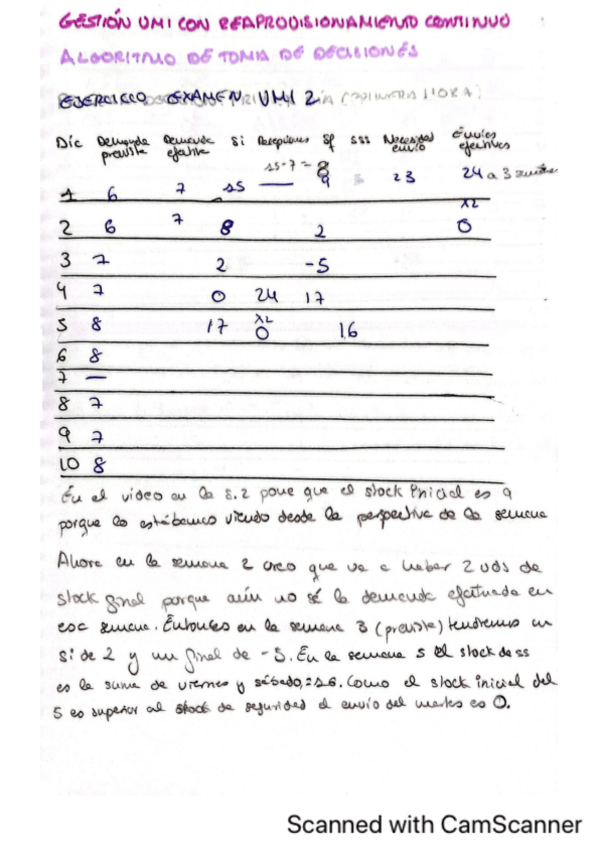 GESTIÓN UMI CON REAPROVISIONAMIENTO CONTINUO
ALGORITMO DE TOMA DE DECISIONES
EJERCICIO EXAMEN UMI 2 (PRIMERA HORA)
Dic Demanda prevista Demanda efectiva Si Recepciones Sf SSS Necesidad envío Envíos efectivos
15-7 = 8
1 6 7 15 — 9 23 24 a 3
X2
2 6 7 8 2 0
3 7 2 -5
4 7 0 24 17
X2
5 8 17 0 16
6 8
7 —
8 7
9 7
10 8
En el video en la s.2 pone que el stock inicial es 9
porque lo estábamos viendo desde la perspectiva de la semana
Ahora en la semana 2 creo que va a haber 2 uds de
stock final porque aún no sé la demanda efectuada en
esa semana. Entonces en la semana 3 (prevista) tendremos un
si de 2 y un final de -5. En la semana 5 el stock de ss
es la suma de viernes y sábado, = 16. Como el stock inicial del
5 es superior al stock de seguridad el envío del martes es 0.
Scanned with CamScanner